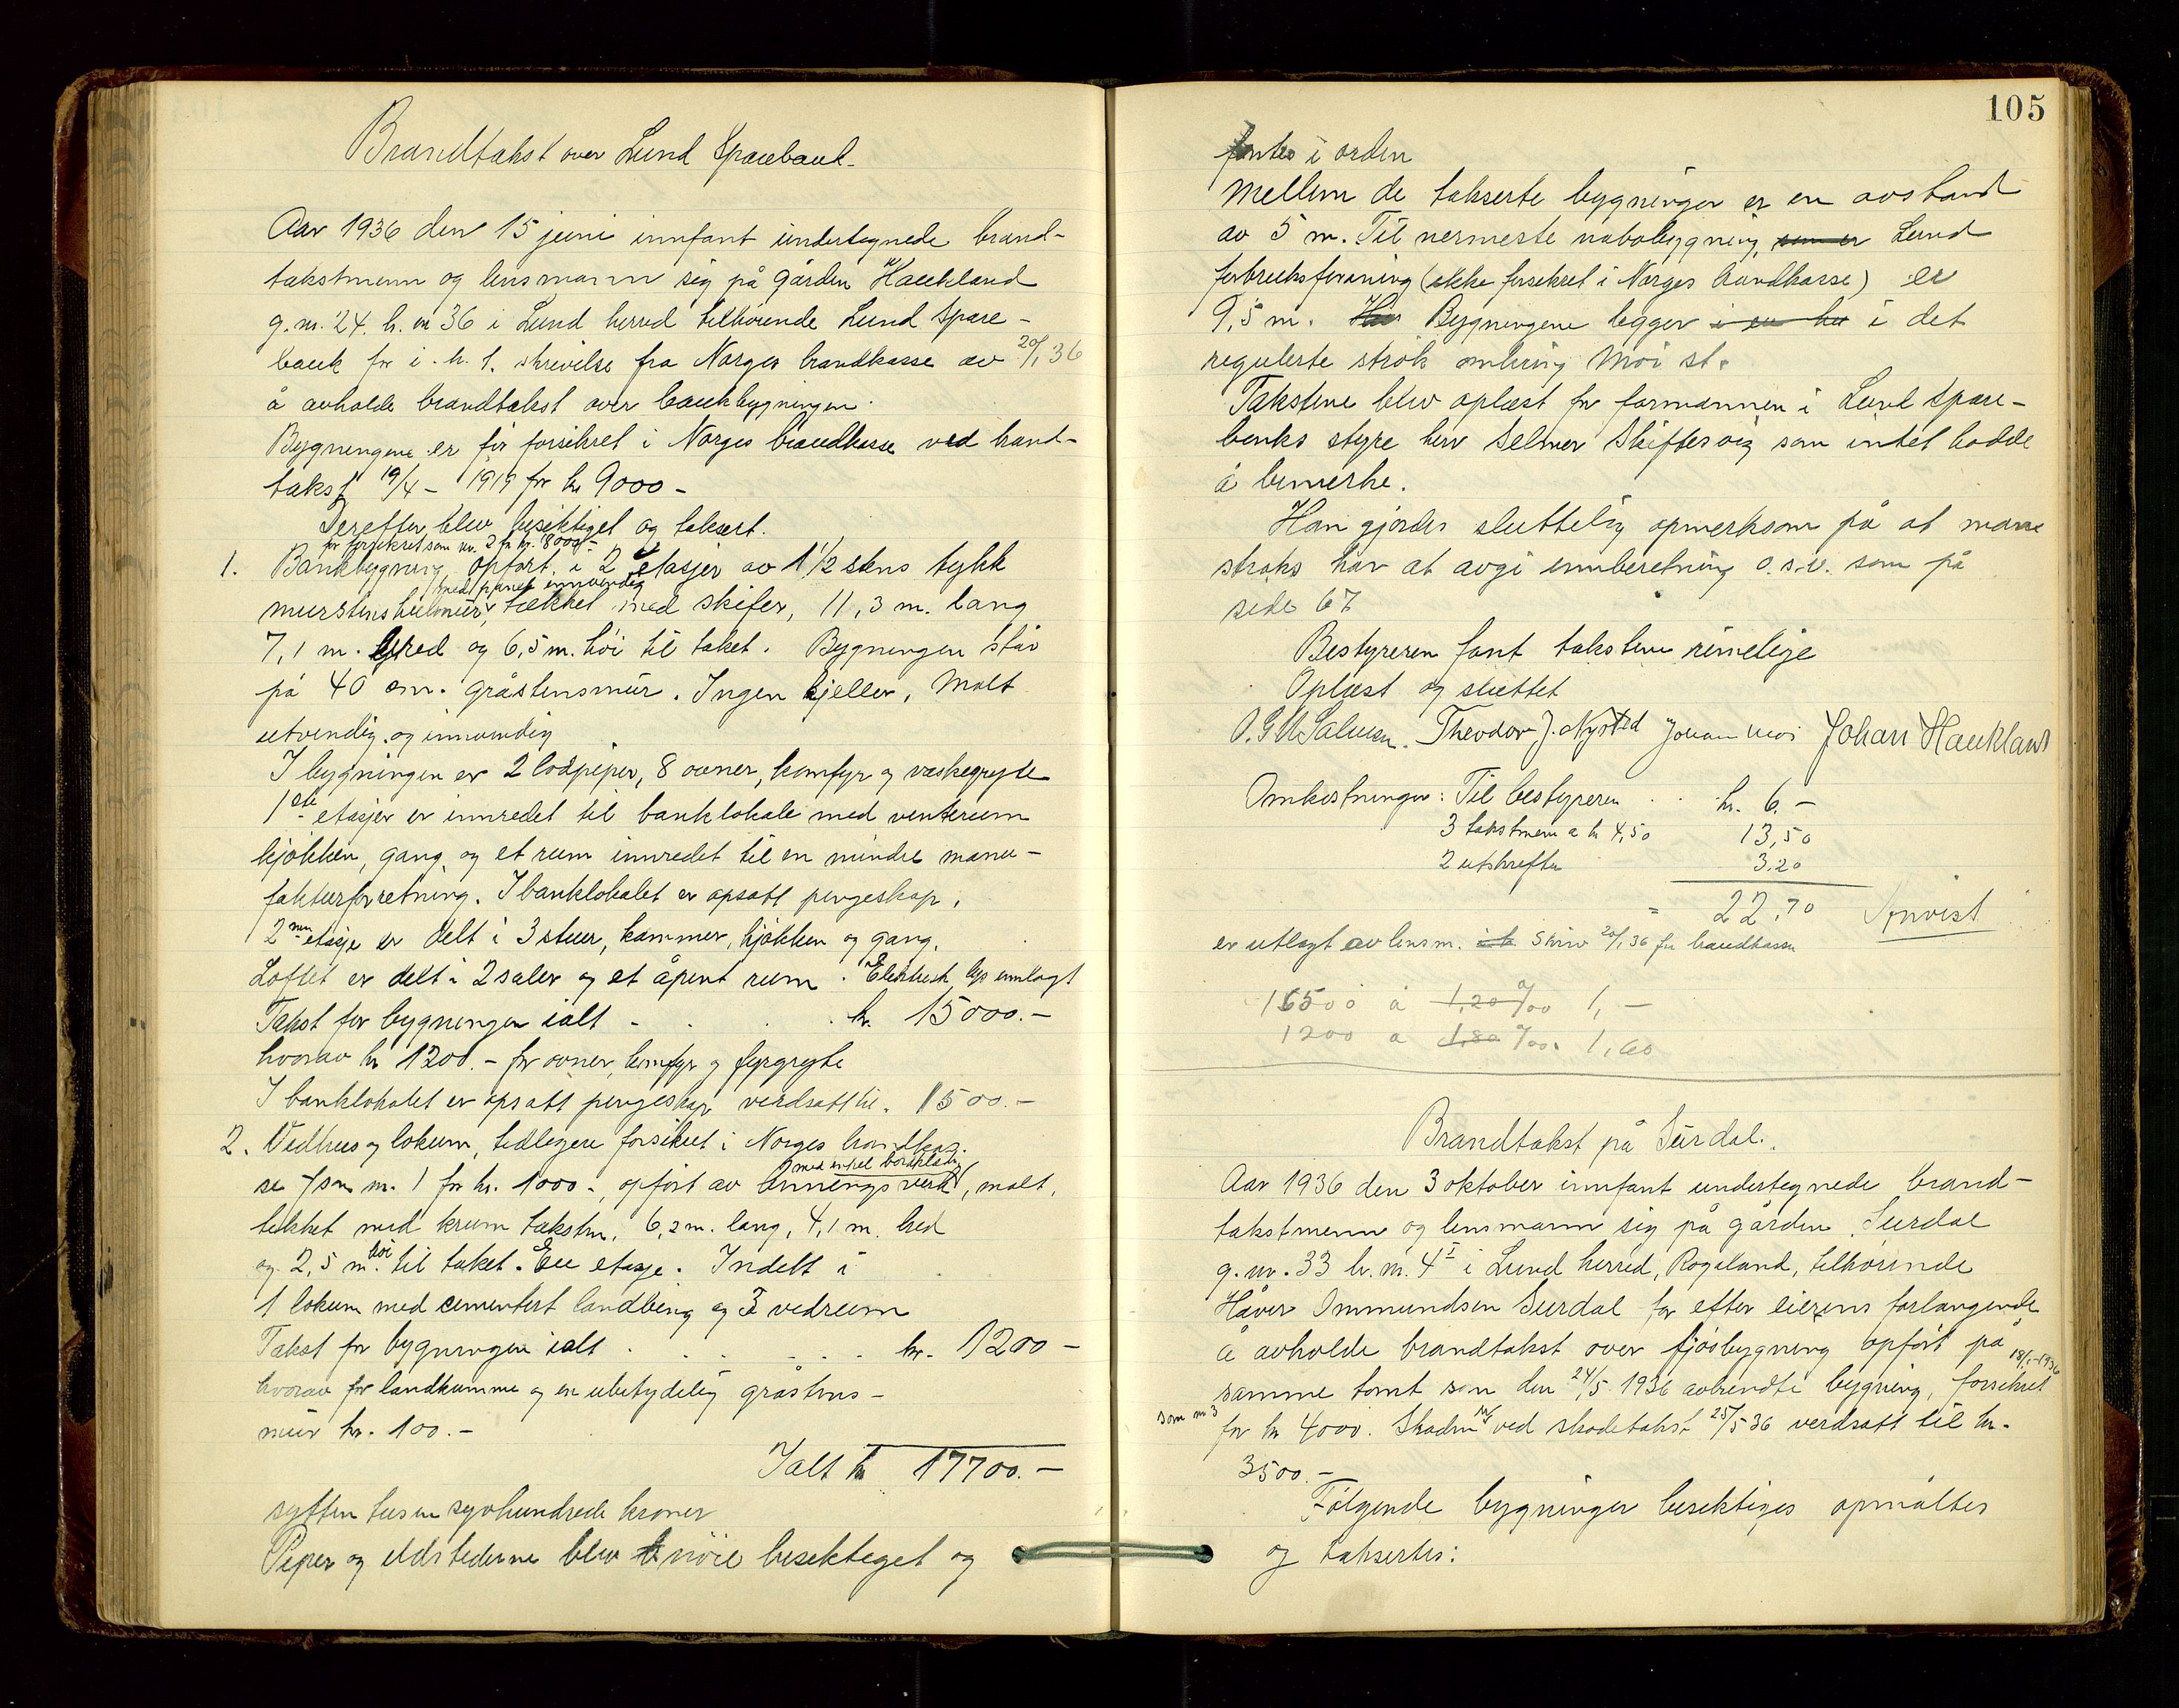 Brandtakst over Lund Sparebank.
Aar 1936 den 15 juni innfant undertegnede brand-
takstmenn og lensmann sig på gården Haukland
g.nr. 24. br. nr 36 i Lund herred tilhørende Lund Spare-
bank for i h. t. skrivelse fra Norges brandkasse av 20/1 36
å avholde brandtakst over bankbygningen.
Bygningene er før forsikret i Norges brandkasse ved brand-
takst 19/4 - 1919 for kr 9000 -
Derefter blev besiktiget og taksert.
før forsikret som nr. 2 for kr. 8000.-
1. Bankbygning opført i 2 etasjer av 1 1/2 stens tykk
med panel innvendig
murstenshulmur, tækket med skifer, 11,3 m. lang
7,1 m. bred og 6,5 m. høi til taket. Bygningen står
på 40 cm. gråstensmur. Ingen kjeller, Malt
utvendig og innvendig
I bygningen er 2 lodpiper, 8 ovner, komfyr og vaskegryte
1ste etasjer er innredet til banklokale med venterum
kjøkken, gang og et rum innredet til en mindre manu-
fakturforretning. I banklokalet er opsatt pengeskap.
2nen etasje er delt i 3 stuer, kammer, kjøkken og gang.
Loftet er delt i 2 saler og et åpent rum. Elektrisk lys innlagt
Takst for bygningen ialt - . . . kr. 15000.-
hvorav kr 1200.- for ovner, komfyr og fyrgryte
I banklokalet er opsatt pengeskap verdsatt til. 1500.-
2. Vedhus og lokum, tidligere forsikret i Norges brandkas-
med enkel bordklædn.
se som nr. 1 for kr. 1000 -, opført av binningsverk, malt,
tekket med krum taksten, 6,2 m. lang, 4,1 m. bred
og 2,5 m. høi til taket. En etasje. Indelt i
1 lokum med cementert landbing og 3 vedrum
Takst for bygningen ialt . . . . kr. 1200 -
hvorav for landkumme og en ubetydelig gråstens-
mur kr. 100.-
Ialt kr 17700.-
sytten tusen syvhundrede kroner
Piper og ildstederne blev nøie besiktiget og
105
fantes i orden
Mellem de takserte bygninger er en avstand
av 5 m. Til nermeste nabobygning, som er Lund
forbruksforening (ikke forsikret i Norges brandkasse) er
9,5 m. Bygningene ligger i en by i det
regulerte strøk omkring Moi st.
Takstene blev oplæst for formannen i Lund Spare-
banks styre herr Selmer Skiftesvig som intet hadde
å bemerke.
Han gjordes sluttelig opmerksom på at man
straks har at avgi innberetning o.s.v. som på
side 67
Bestyreren fant takstene rimelige
Oplæst og sluttet
Theodor J. Nysted Johan Moi Johan Haukland
Omkostninger: Til bestyreren . . kr. 6.-
3 takstmenn a kr 4,50 13,50
2 utskrifter 3.20
= 22.70 Anvist
er utlagt av lensm. skriv 20/1 36 fra brandkassen
16500 å 1,20 ‰ 1,-
1200 a 1,80 ‰ 1,60
Brandtakst på Surdal.
Aar 1936 den 3 oktober innfant undertegnede brand-
takstmenn og lensmann sig på gården Surdal
g.nr. 33 br. nr. 4 I i Lund herred, Rogaland, tilhørende
Håver Ommundsen Surdal for efter eierens forlangende
å avholde brandtakst over fjøsbygning opført på
samme tomt som den 24/5 1936 avbrendte bygning, forsikret 18/1-1936
som nr 3 for kr 4000. Skaden ved skadetakst 25/5 36 verdsatt til kr.
3500.-
Følgende bygninger besiktiges opmåltes
og taksertes: